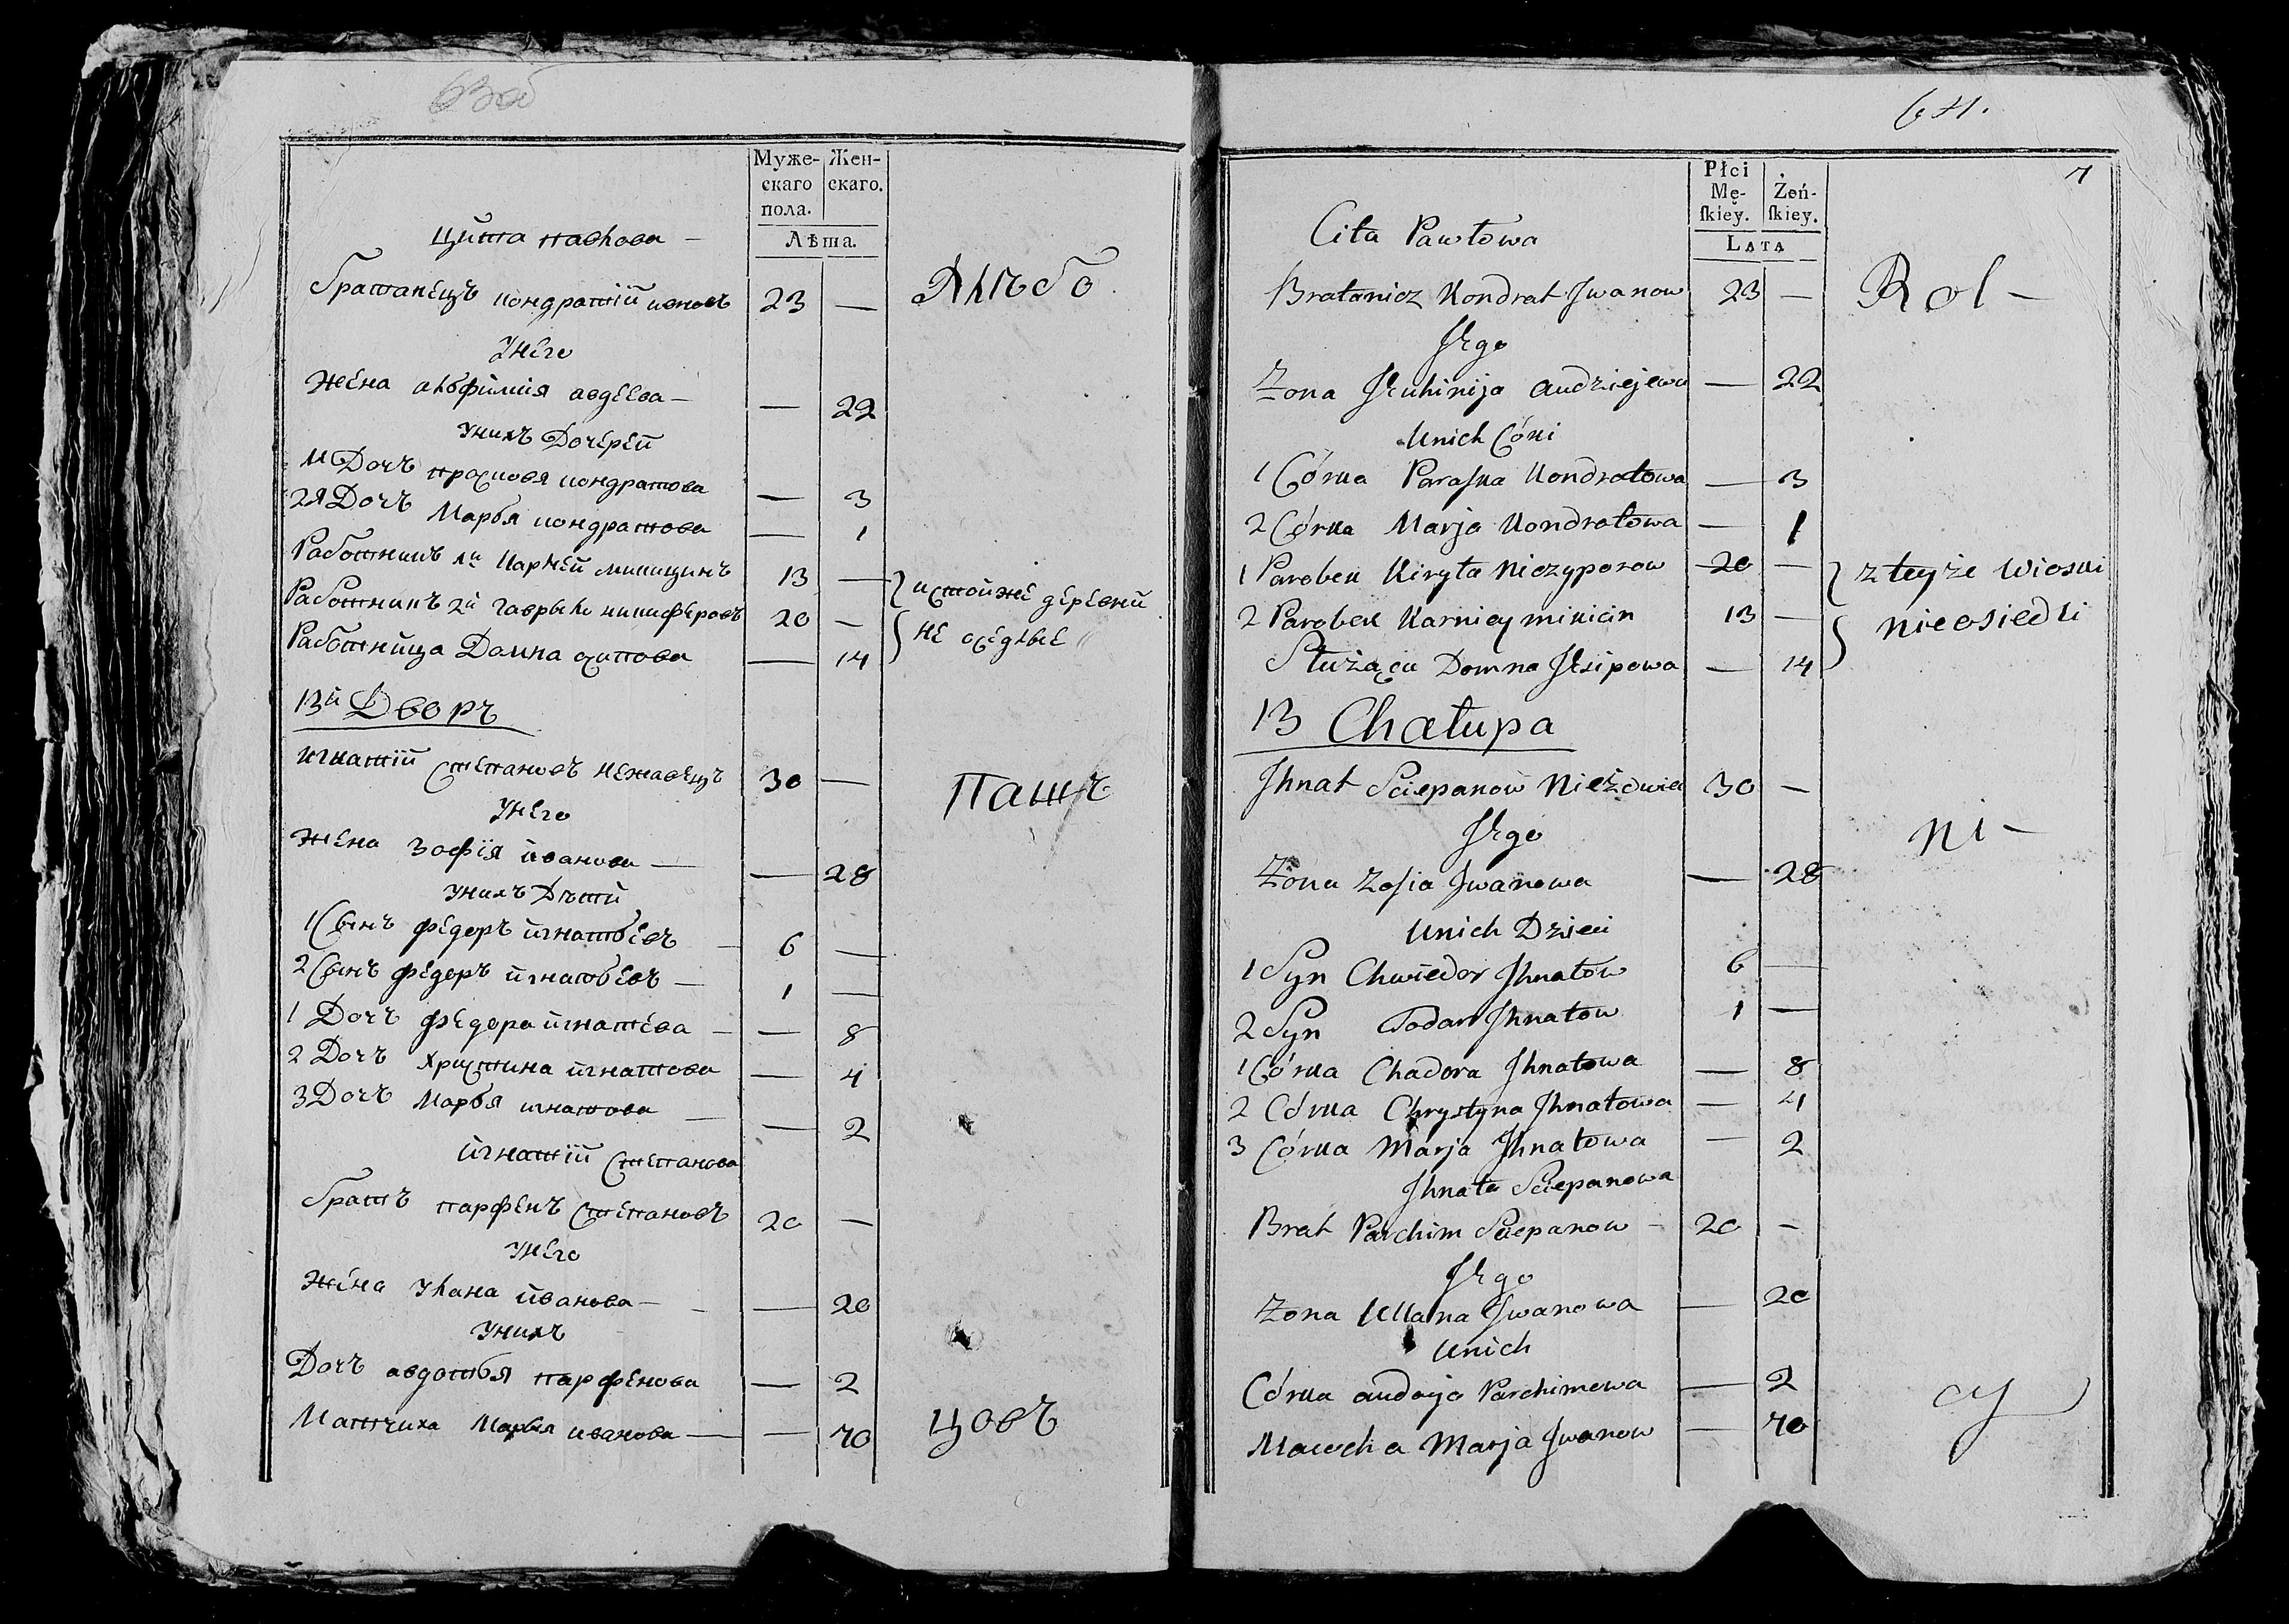 63об
Муже-
скаго
пола.
Жен-
скаго.
Лѣта.
Цита павлова —
братанецъ кондратiй ивновъ 23 —
Хлѣбо
Унего
жена аѳфимiя авдеева — — 22
Унихъ Дочерей
1я Дочъ прасковя кондратова — 3
2я Дочъ Марья кондратова — 1
Работникъ 1й Карней микицинъ 13 —
Работникъ 2й гаврыло никифоровъ 20 —
истойже деревни
Работница Домна осипова — 14
не оседлые
13й Дворъ
игнатiй степановъ 30 —
Пашъ
Унего
жена Зофiя иванова — — 28
Унихъ Дѣти
1 Сынъ федеръ игнатьевъ — 6 —
2 Сынъ федеръ игнатьевъ — 1 —
1 Дочъ федора игнатева — — 8
2 Дочъ христина игнатова — 4
3 Дочъ Марья игнатова — — 2
игнатiй степанова
братъ парфенъ степановъ 20 —
Унего
жена Улана иванова — — 20
Унихъ
Дочъ авдотья парфенова — 2
Матчиха Марья иванова — — 70
цовъ
641.
7
Płci
Mę-
ſkiey.
Żeń-
ſkiey.
Lata
Cita Pawłowa
Bratanicz Kondrat Jwanow 23 —
Rol —
Jego
Zona Jeuhinija audziejewa — 22
Unich Córki
1 Córka Paraſka Kondratowa — 3
2 Córka Marja Kondratowa — 1
1 Parobek Kiryła Niczyporow 20 —
z teyże Wioski
2 Parobek Karniey mikicin 13 —
nieosiedli
Służąca Domna Jesipowa — 14
13 Chałupa
Jhnat Sciepanow 30 —
Jego
ni —
Zona Zofia Jwanowa — 28
Unich Dzieci
1 Syn Chwiedor Jhnatow 6 —
2 Syn Todar Jhnatow 1 —
1 Córka Chadora Jhnatowa — 8
2 Córka Chrystyna Jhnatowa — 4
3 Córka Marja Jhnatowa — 2
Jhnata Sciepanowa
Brat Parchim Sciepanow — 20 —
Jego
Zona Ullana Jwanowa — 20
Unich
Córka audocja Parchimowa — 2
Macocha Marja Jwanow — 70
cy